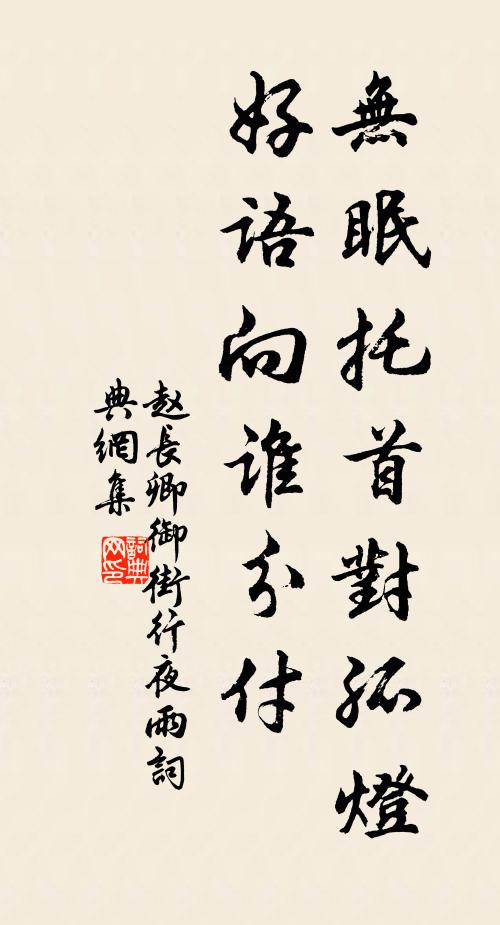 無眠托首對孤燈
好語向誰分付
赵長卿御街行夜雨詞
典網集
詞典网印